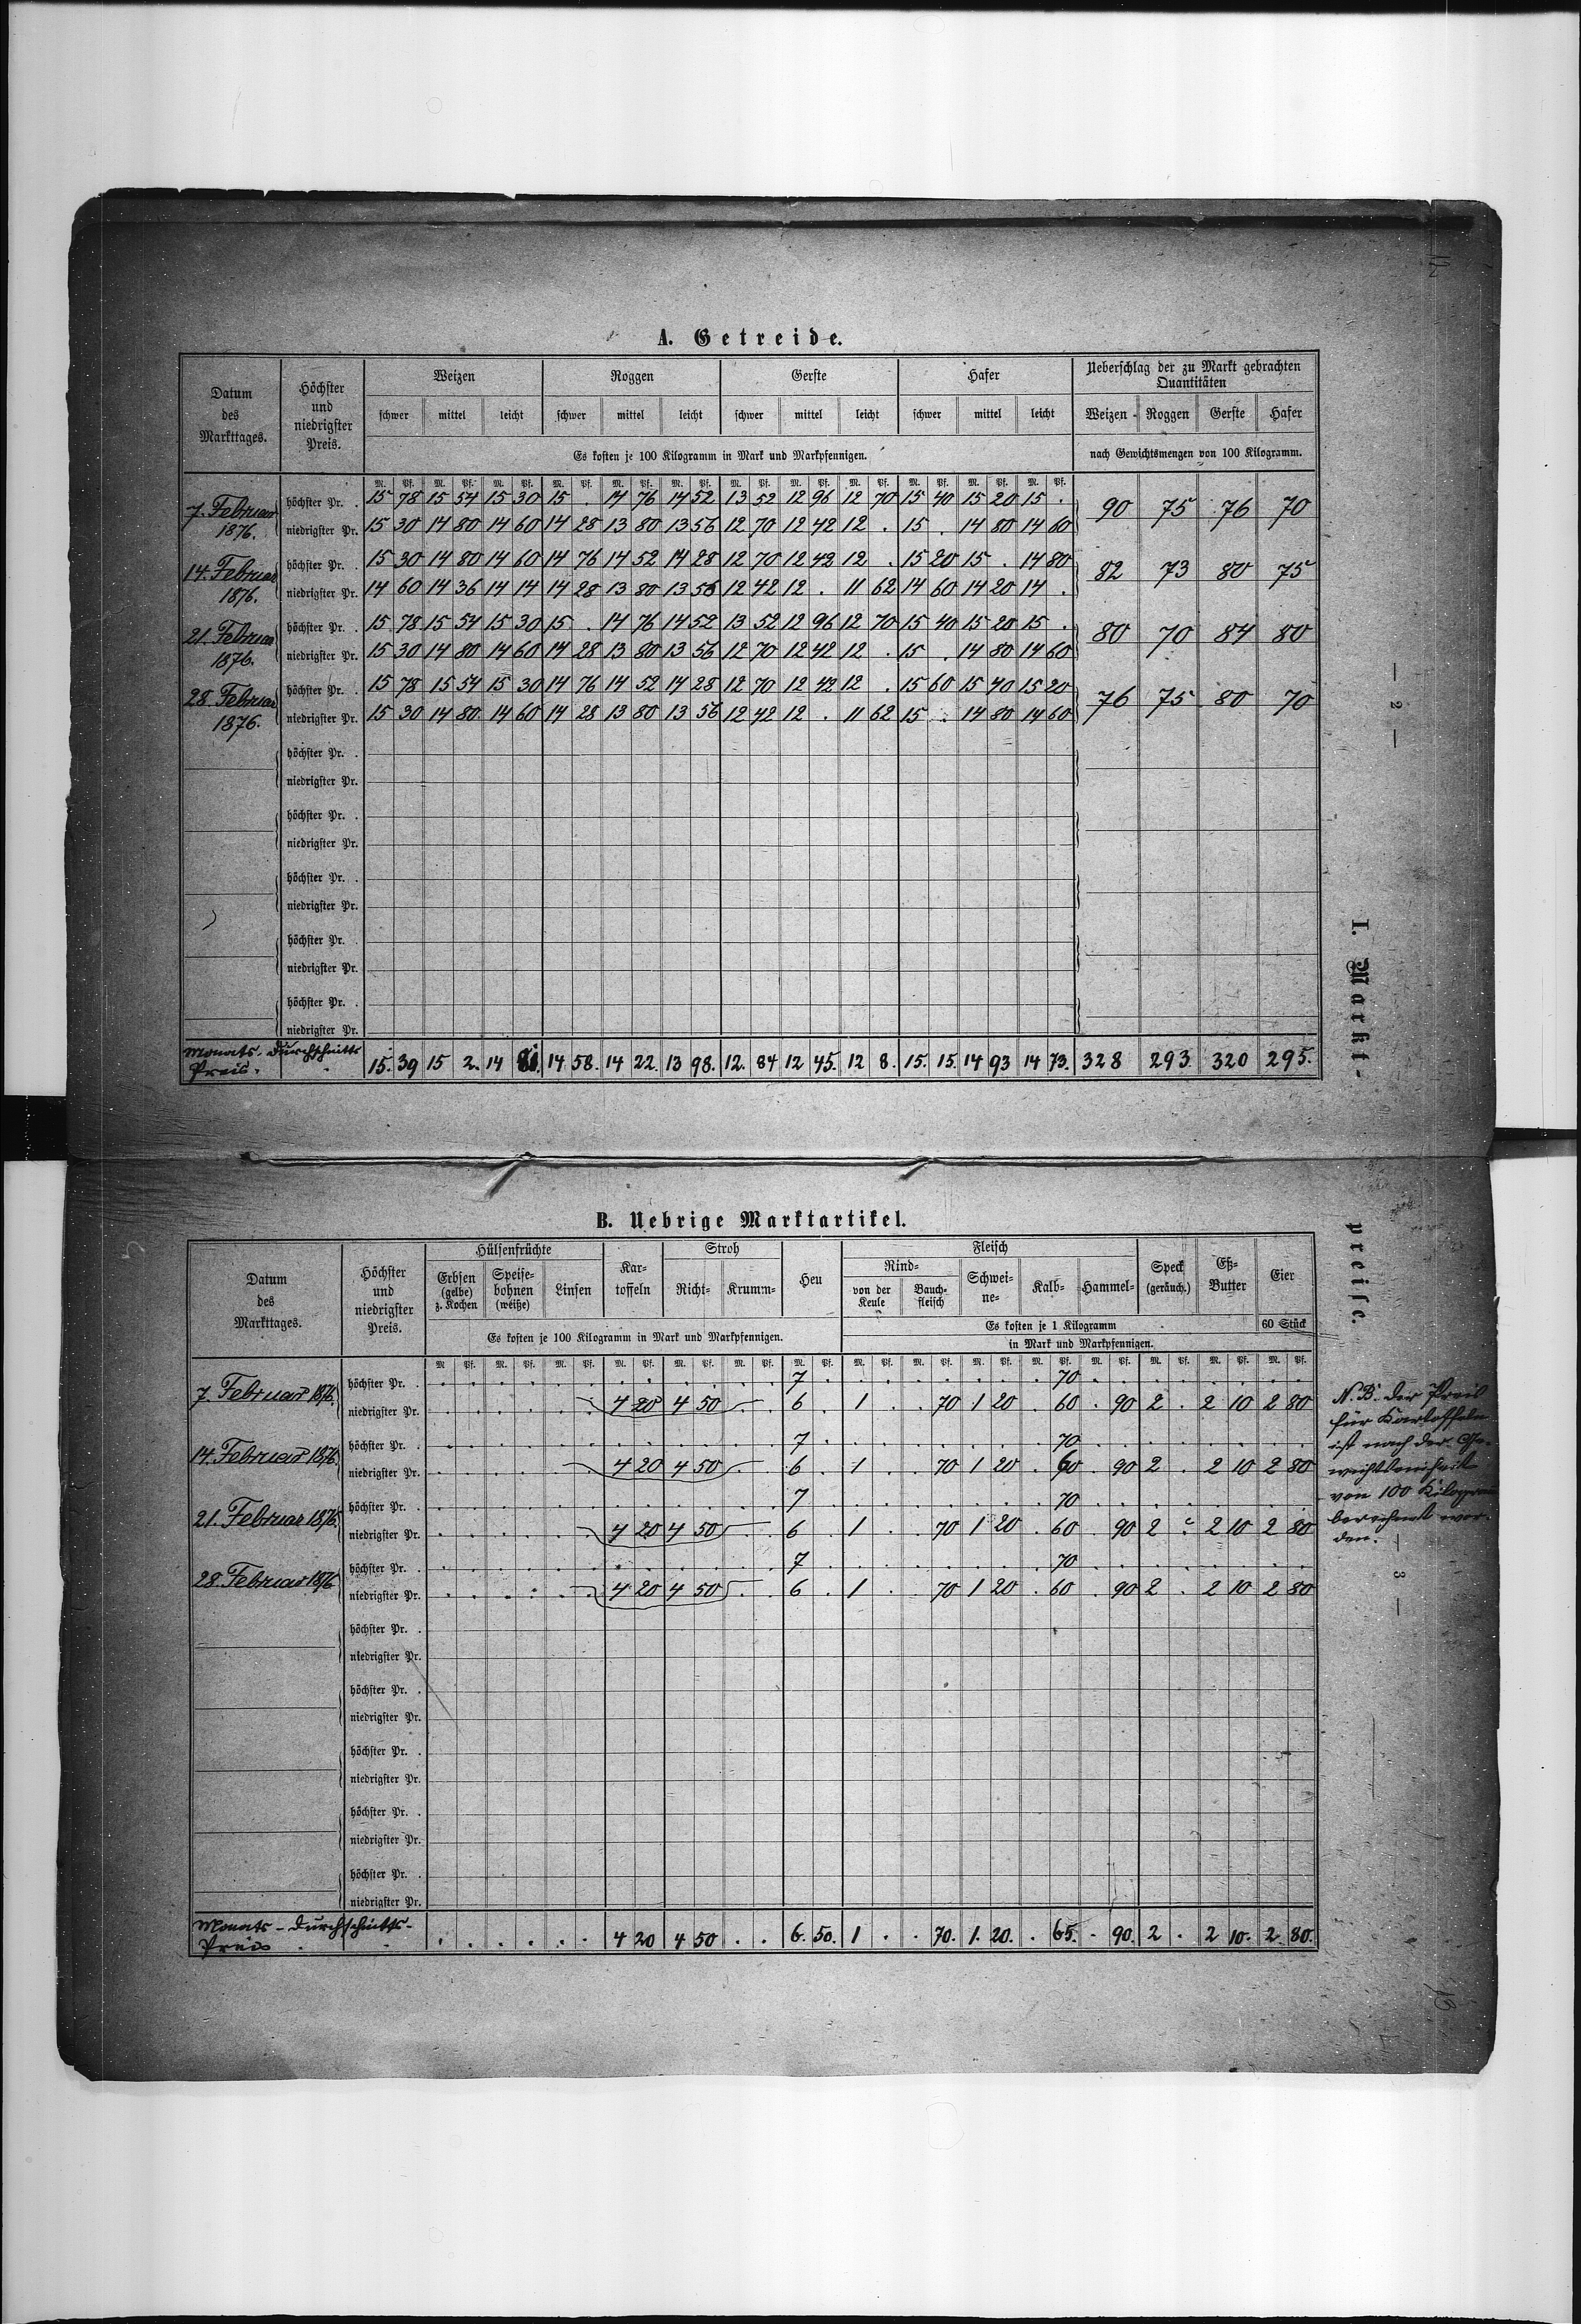 A. Getreide.
Datum des Markttages.
Höchster und niedrigster Preis.
Weizen Roggen Gerste Hafer
Ueberschlag der zu Markt gebrachten Quantitäten
schwer mittel leicht schwer mittel leicht schwer mittel leicht schwer mittel leicht Weizen Roggen Gerste Hafer
Es kosten je 100 Kilogramm in Mark und Markpfennigen. nach Gewichtsmengen von 100 Kilogramm.
M. Pf. M. Pf. M. Pf. M. Pf. M. Pf. M. Pf. M. Pf. M. Pf. M. Pf. M. Pf. M. Pf. M. Pf.
7. Februar 1876.
höchster Pr. . 15 78 15 54 15 30 15 . 14 76 14 52 13 52 12 96 12 70 15 40 15 20 15 . 90 75 76 70
niedrigster Pr. 15 30 14 80 14 60 14 28 13 80 13 56 12 70 12 42 12 . 15 . 14 80 14 60
14. Februar 1876.
höchster Pr. . 15 30 14 80 14 60 14 76 14 52 14 28 12 70 12 42 12 . 15 20 15 . 14 80 82 73 80 75
niedrigster Pr. 14 60 14 36 14 14 14 28 13 80 13 56 12 42 12 . 11 62 14 60 14 20 14 .
21. Februar 1876.
höchster Pr. . 15 78 15 54 15 30 15 . 14 76 14 52 13 52 12 96 12 70 15 40 15 20 15 . 80 70 84 80
niedrigster Pr. 15 30 14 80 14 60 14 28 13 80 13 56 12 70 12 42 12 . 15 . 14 80 14 60
28. Februar 1876.
höchster Pr. . 15 78 15 54 15 30 14 76 14 52 14 28 12 70 12 42 12 . 15 60 15 40 15 20 76 75 80 70
niedrigster Pr. 15 30 14 80 14 60 14 28 13 80 13 56 12 42 12 . 11 62 15 . 14 80 14 60
höchster Pr. .
niedrigster Pr.
höchster Pr. .
niedrigster Pr.
höchster Pr. .
niedrigster Pr.
höchster Pr. .
niedrigster Pr.
höchster Pr. .
niedrigster Pr.
Monats-Durchschnitts
Preis. 15. 39 15 2. 14 14. 58. 14 22. 13 98. 12. 84 12 45. 12 8. 15. 15. 14 93 14 73. 328 293. 320 295.
— 2 —
I. Markt-
B. Uebrige Marktartikel.
Datum des Markttages.
Höchster und niedrigster Preis.
Hülsenfrüchte
Erbsen (gelbe) z. Kochen
Speisebohnen (weiße)
Linsen
Kartoffeln
Stroh
Richt- Krumm-
Heu
Fleisch
Rind-
von der Keule
Bauchfleisch
Schweine-
Kalb-
Hammel-
Speck (geräuch.)
Eß-Butter
Eier
Es kosten je 100 Kilogramm in Mark und Markpfennigen.
Es kosten je 1 Kilogramm 60 Stück
in Mark und Markpfennigen.
M. Pf. M. Pf. M. Pf. M. Pf. M. Pf. M. Pf. M. Pf. M. Pf. M. Pf. M. Pf. M. Pf. M. Pf. M. Pf. M. Pf. M. Pf.
7. Februar 1876.
höchster Pr. . 7 . 70
niedrigster Pr. 4 20 4 50 6 . 1 . . 70 1 20 . 60 . 90 2 . 2 10 2 80
14. Februar 1876.
höchster Pr. . 7 . 70
niedrigster Pr. 4 20 4 50 6 . 1 . . 70 1 20 . 60 . 90 2 . 2 10 2 80
21. Februar 1876.
höchster Pr. . 7 . 70
niedrigster Pr. 4 20 4 50 6 . 1 . . 70 1 20 . 60 . 90 2 . 2 10 2 80
28. Februar 1876
höchster Pr. . 7 . 70
niedrigster Pr. 4 20 4 50 6 . 1 . . 70 1 20 . 60 . 90 2 . 2 10 2 80
höchster Pr. .
niedrigster Pr.
höchster Pr. .
niedrigster Pr.
höchster Pr. .
niedrigster Pr.
höchster Pr. .
niedrigster Pr.
höchster Pr. .
niedrigster Pr.
Monats-Durchschnitts-
Preis . . . . . . . 4 20 4 50 . . 6. 50. 1 . . 70. 1. 20. . 65. . 90. 2 . 2 10. 2. 80.
preise.
N. B. Der Preis
für Kartoffeln
ist nach der Ge-
wichtseinheit
von 100 Kilogramm
berechnet wor-
den.
— 3 —